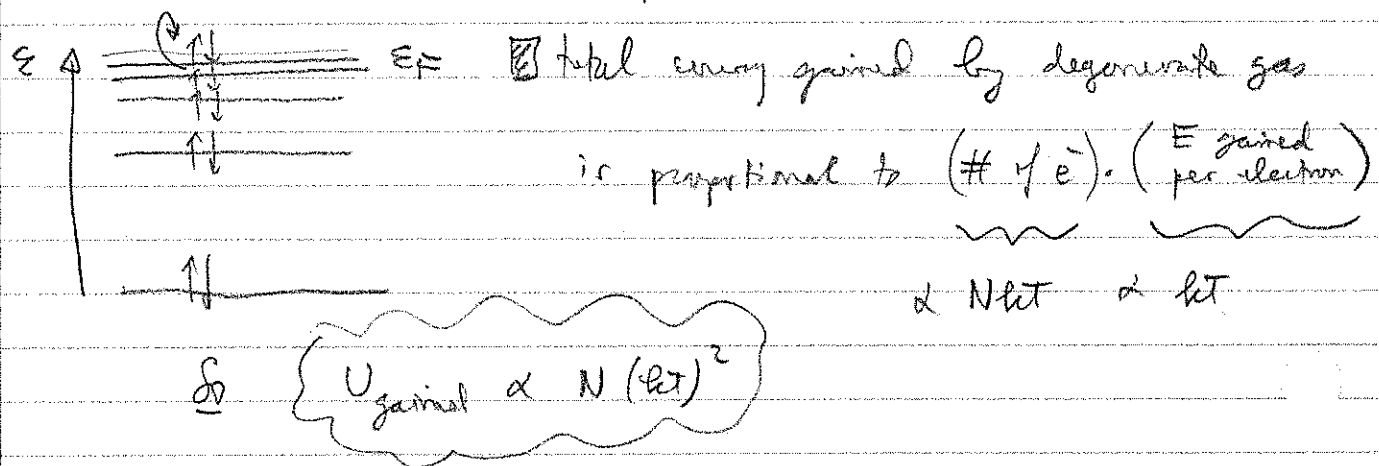 ε εF total energy gained by degenerate gas
is proportional to (# of e⁻)·(E gained per electron)
∝ NkT ∝ kT
So U gained ∝ N(kT)²